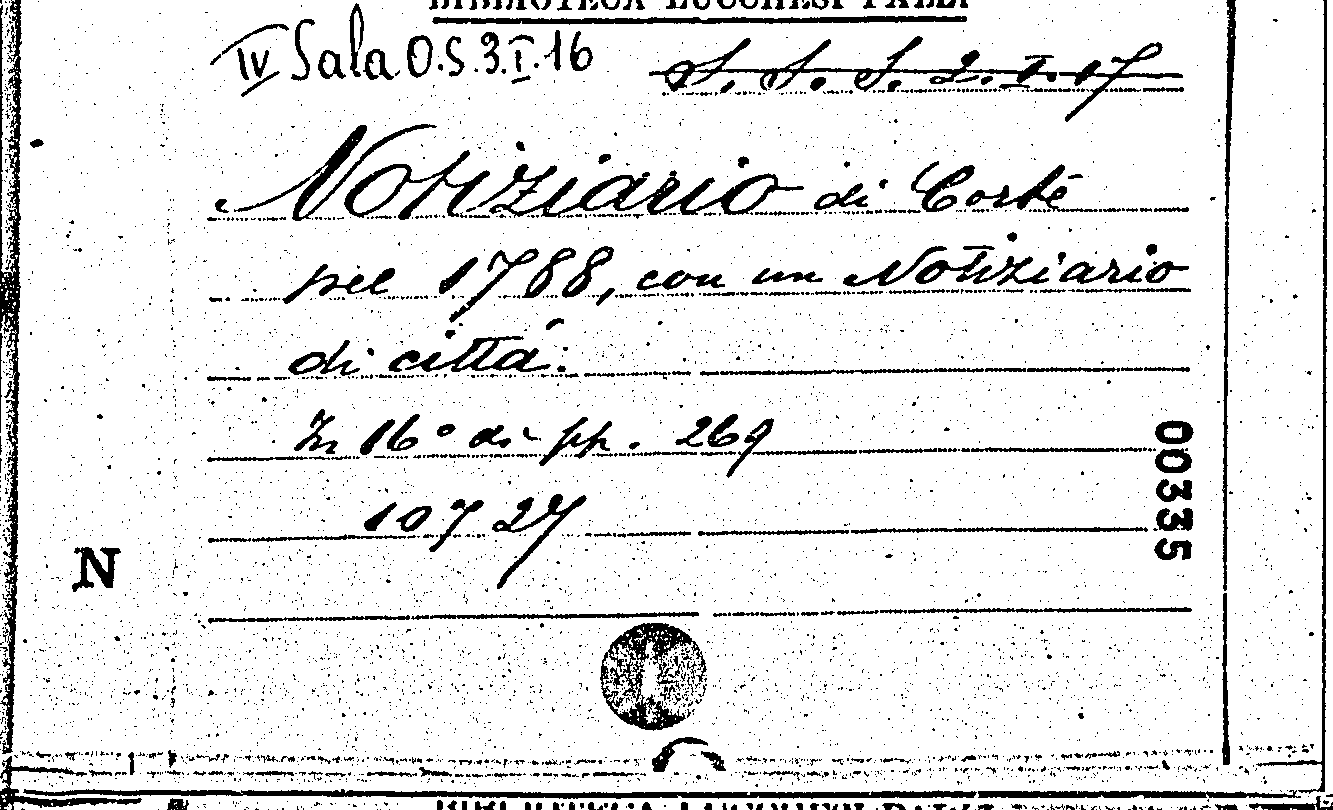 BIBLIOTECA LUCCHESI PALLI
IV Sala O.S.3.I.16
S. S. S. 2. I. 17
Notiziario di Corte
pel 1788, con un Notiziario
di città.
In 16° di pp. 269
10727
00335
N
BIBLIOTECA LUCCHESI PALLI